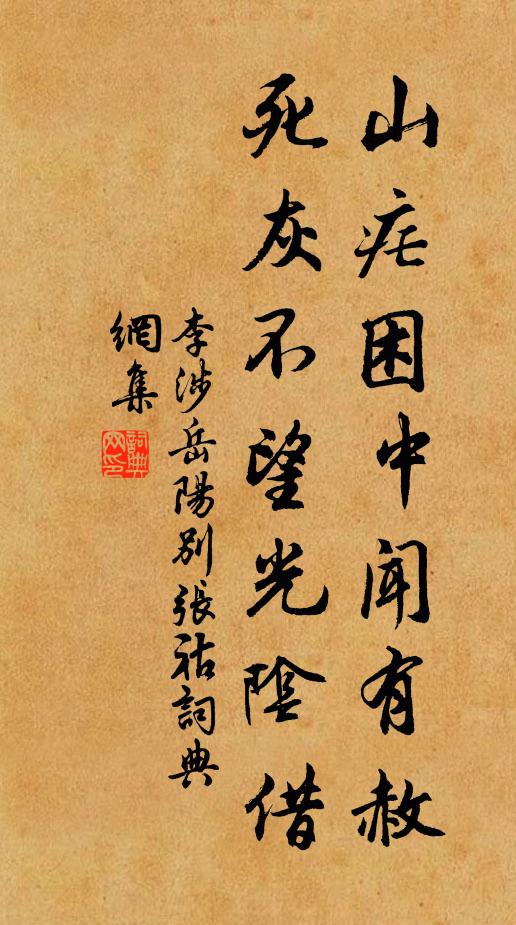 山疟困中闻有赦
死灰不望光阴借
李涉岳陽别張祜詞典
網集
詞典
网印